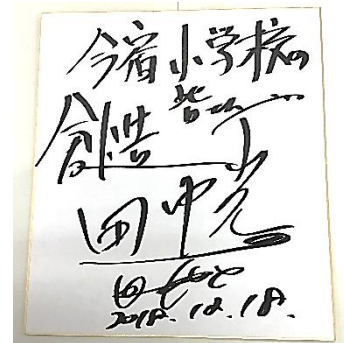 今宿小学校の
皆さんへ
創造
田中光
2018.12.18.